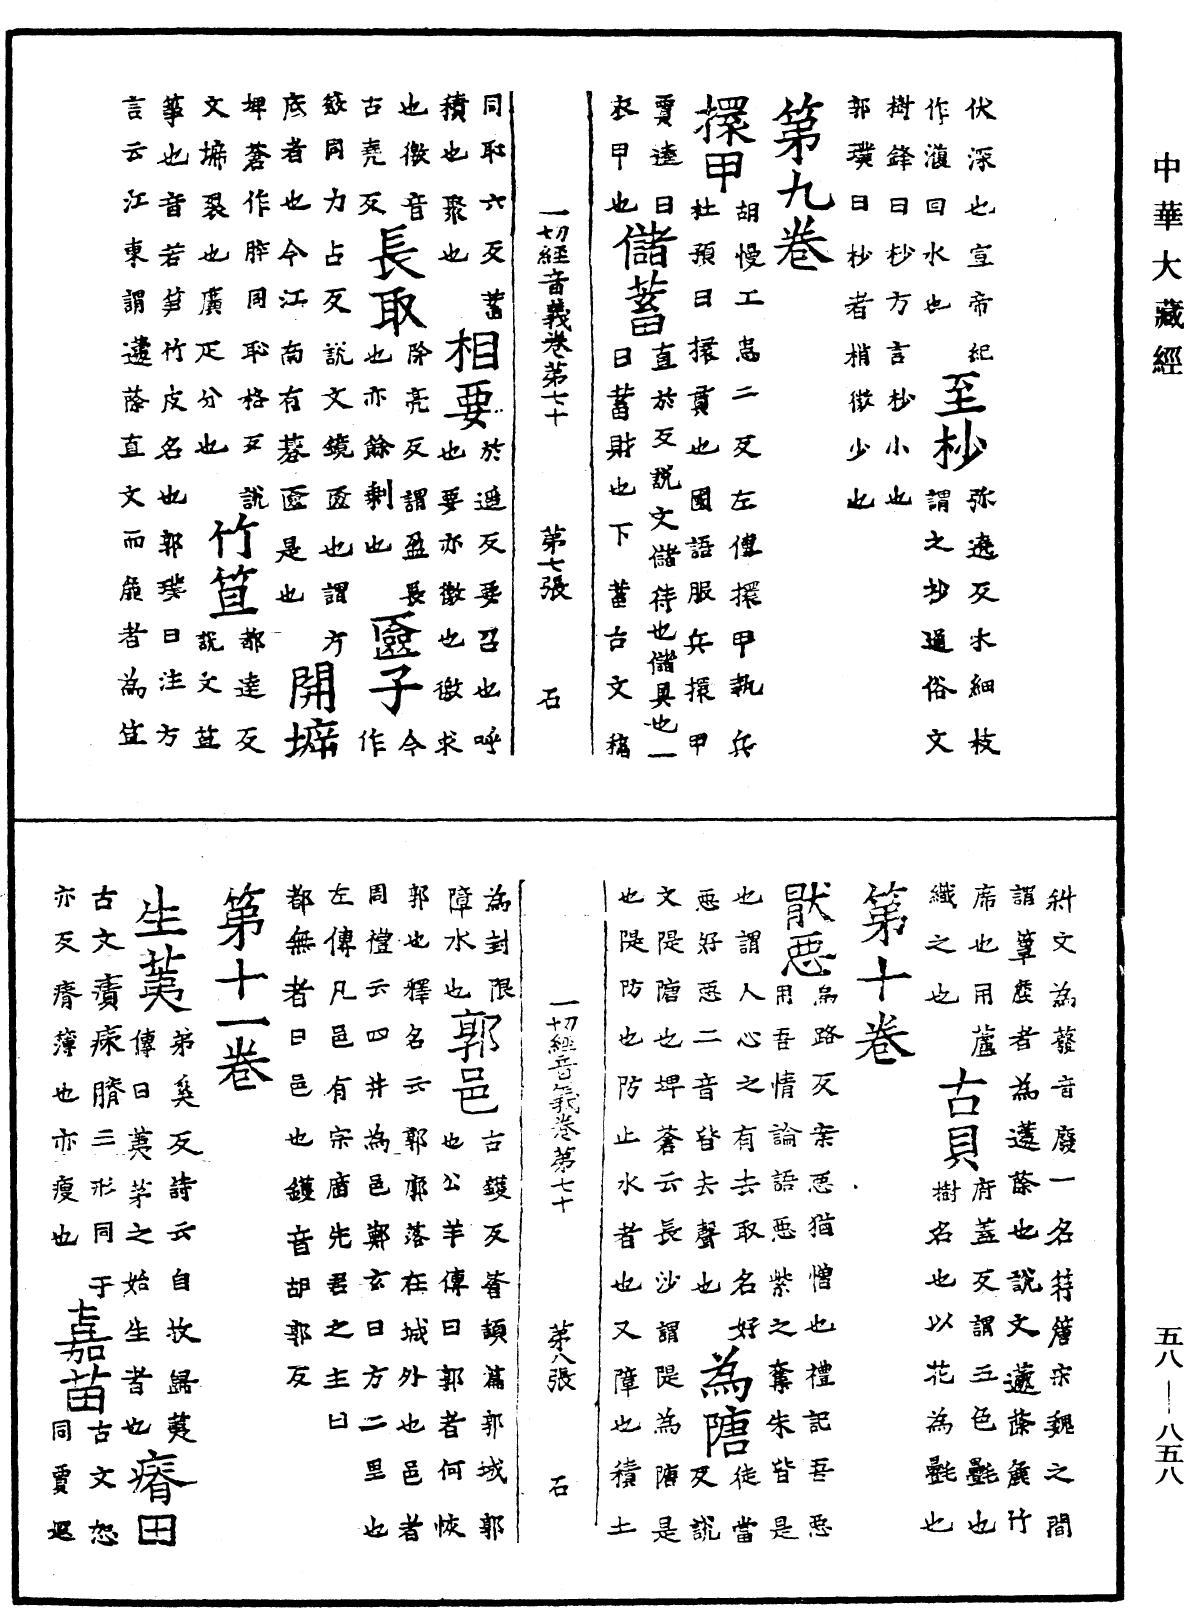 中華大藏經
伏深也宣帝紀
作澓回水也
至杪
弥遶反木細枝
謂之杪通俗文
樹鋒曰杪方言杪小也
郭璞曰杪者梢微少也
第九卷
擐甲
胡慢工患二反左傳擐甲執兵
杜預曰擐貫也國語服兵擐甲
賈逵曰
衣甲也
儲蓄
直於反說文儲待也儲具也一
曰蓄財也下蓄古文稸
一切經音義卷第七十 第七張 石
同耻六反蓄
積也聚也
相要
於遥反要召也呼
也要亦徼也徼求
也徼音
古堯反
長取
除亮反謂盈長
也亦餘剩也
匳子
今
作
籢同力占反說文鏡匳也謂方
底者也今江南有棊匳是也
開㙤
埤蒼作㙤同耻格反說
文㙤裂也廣疋分也
竹笪
都達反
說文笪
笞也音若笋竹皮名也郭璞曰注方
言云江東謂蘧蒢直文而麁者為笪
斜文為廢音廢一名筕篖宋魏之間
謂簟麁者為蘧蒢也說文蘧蒢麁竹
席也用蘆
織之也
古貝
府蓋反謂五色㲲也
樹名也以花為㲲也
第十卷
猒惡
烏路反案惡猶憎也禮記吾惡
用吾情論語惡紫之奪朱皆是
也謂人心之有去取名好
惡好惡二音皆去聲也
為隄
徒當
反說
文隄塘也埤蒼云長沙謂隄為塘是
也隄防也防止水者也又障也積土
一切經音義卷第七十 第八張 石
為封限
障水也
郭邑
古鑊反蒼頡篇郭城郭
也公羊傳曰郭者何恢
郭也釋名云郭廓落在城外也邑者
周禮云四井為邑鄭玄曰方二里也
左傳凡邑有宗廟先君之主曰
都無者曰邑也鑊音胡郭反
第十一卷
生荑
弟奚反詩云自牧歸荑
傳曰荑茅之始生者也
瘠田
古文㾊㾊膌三形同
亦反瘠薄也亦瘦也
嘉苗
古文恕
同賈遐
五八—八五八